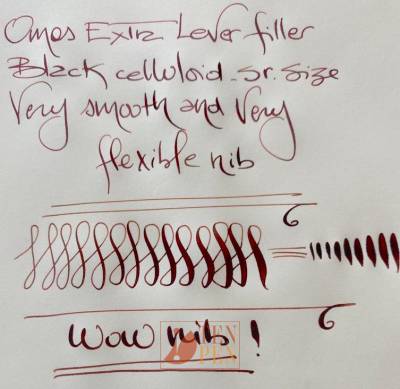 Omas Extra Lever filler
Black celluloid - Sr. Size
Very smooth and Very
flexible nib
6
6
Wow nib !
PEN
PEN